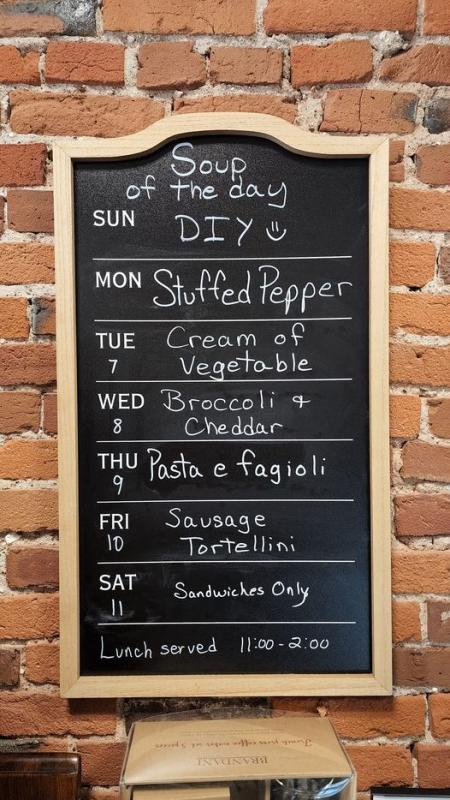 Soup
of the day
SUN DIY
MON Stuffed Pepper
TUE Cream of
7 Vegetable
WED Broccoli &
8 Cheddar
THU Pasta e fagioli
9
FRI Sausage
10 Tortellini
SAT Sandwiches Only
11
Lunch served 11:00-2:00
French press coffee maker
BRANDANI